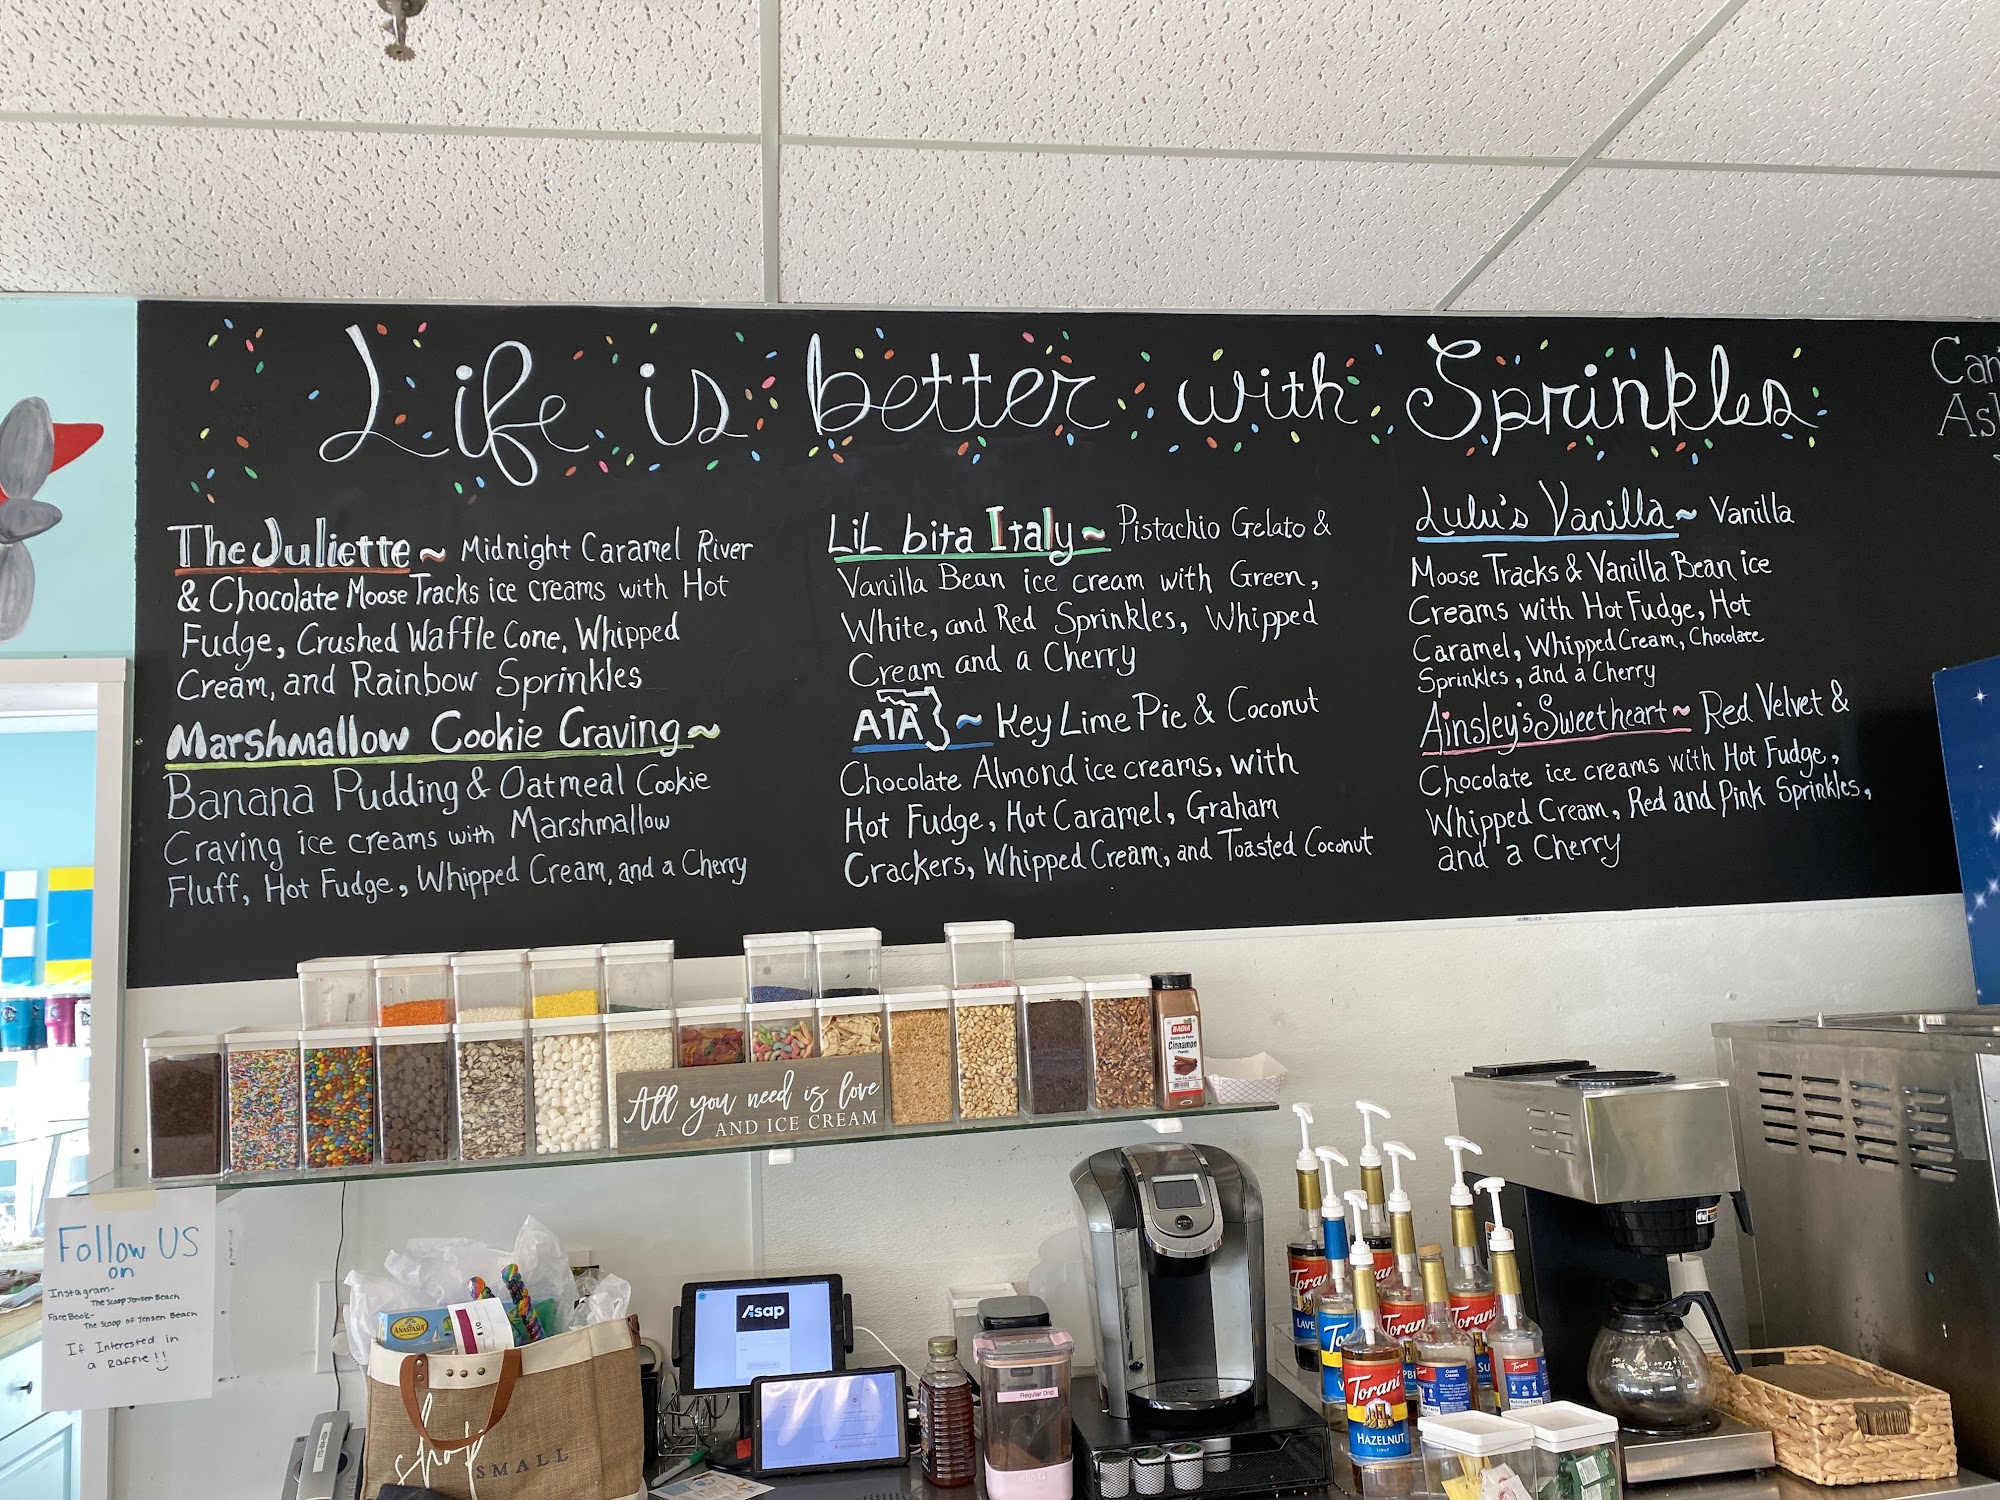 Life is better with Sprinkles
The Juliette ~ Midnight Caramel River
& Chocolate Moose Tracks ice creams with Hot
Fudge, Crushed Waffle Cone, Whipped
Cream, and Rainbow Sprinkles
Marshmallow Cookie Craving ~
Banana Pudding & Oatmeal Cookie
Craving ice creams with Marshmallow
Fluff, Hot Fudge, Whipped Cream, and a Cherry
LiL bita Italy ~ Pistachio Gelato &
Vanilla Bean ice cream with Green,
White, and Red Sprinkles, Whipped
Cream and a Cherry
A1A ~ Key Lime Pie & Coconut
Chocolate Almond ice creams, with
Hot Fudge, Hot Caramel, Graham
Crackers, Whipped Cream, and Toasted Coconut
Lulu's Vanilla ~ Vanilla
Moose Tracks & Vanilla Bean ice
Creams with Hot Fudge, Hot
Caramel, Whipped Cream, Chocolate
Sprinkles, and a Cherry
Ainsley's Sweetheart ~ Red Velvet &
Chocolate ice creams with Hot Fudge,
Whipped Cream, Red and Pink Sprinkles,
and a Cherry
All you need is love
AND ICE CREAM
BADIA
Cinnamon
Powder
Follow US
on
Instagram-
The Scoop Jensen Beach
FaceBook-
The Scoop of Jensen Beach
If Interested in
a Raffle!!
ANASTASIA
shop
SMALL
Asap
Regular Drip
Torani
HAZELNUT
Torani
Torani
Torani